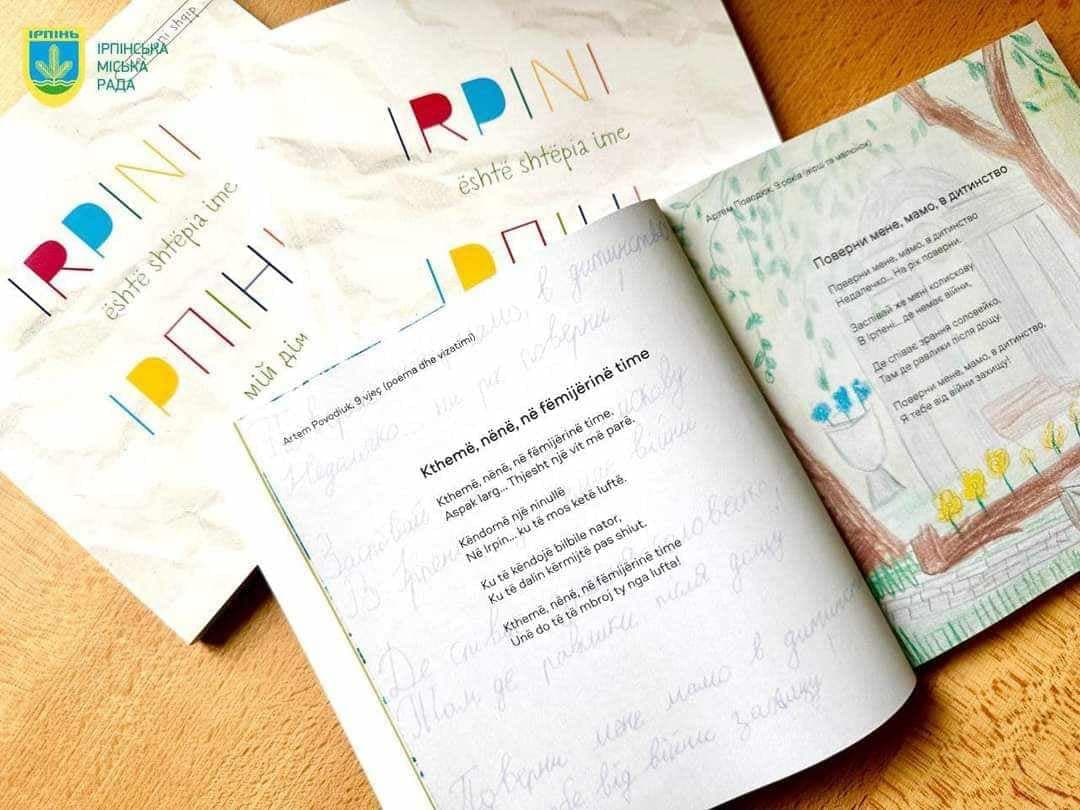 ІРПІНЬ
ІРПІНСЬКА
МІСЬКА
РАДА
shqip
IRPINI
është shtëpia ime
ІРПІНЬ
мій дім
IRPINI
është shtëpia ime
Artem Povodiuk, 9 vjeç (poema dhe vizatimi)
Kthemë, nënë, në fëmijërinë time
Kthemë, nënë, në fëmijërinë time.
Aspak larg... Thjesht një vit më parë.
Këndomë një ninullë
Në Irpin... ku të mos ketë luftë.
Ku të këndojë bilbile nator,
Ku të dalin kërmijtë pas shiut.
Kthemë, nënë, në fëmijërinë time
Unë do të të mbroj ty nga lufta!
в дитинство!
рік поверни
Недалечко
Заспівай
колискову
В Ірпені
війни
Де співає
соловейко,
Там де равлики після дощу
Поверни мене мамо в дитинство!
від війни захищу
Артем Поводюк, 9 років (вірш та малюнок)
Поверни мене, мамо, в дитинство
Поверни мене, мамо, в дитинство
Недалечко... На рік поверни.
Заспівай же мені колискову
В Ірпені... де немає війни,
Де співає зрання соловейко,
Там де равлики після дощу.
Поверни мене, мамо, в дитинство,
Я тебе від війни захищу!